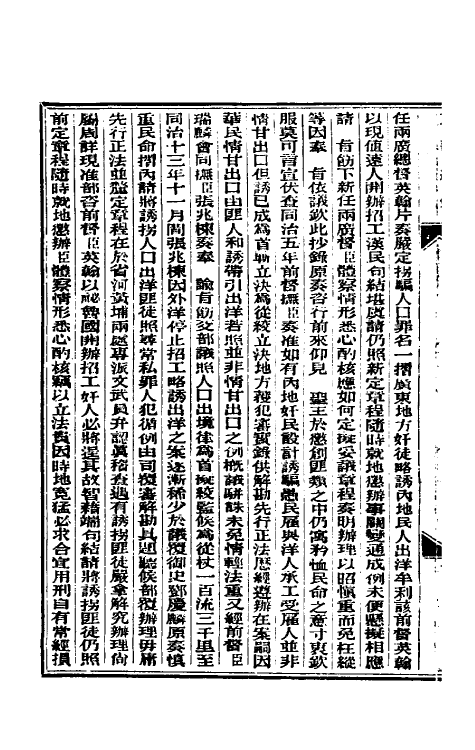 任兩廣總督英翰片奏嚴定拐騙人口罪名一摺廣東地方奸徒略誘內地民人出洋牟利該前督英翰
以現値遠人開辦招工漢民句結堪虞請仍照新定章程隨時就地懲辦事關變通成例未便懸擬相應
請 旨飭下新任兩廣督臣體察情形悉心酌核應如何定擬妥議章程奏明辦理以昭愼重而免枉縱
等因奉 旨依議欽此抄錄原奏咨行前來仰見 聖王於懲創匪類之中仍寓矜恤民命之意寸衷欽
服莫可言宣伏查同治五年前督撫臣奏准如有內地奸民設計誘騙愚民雇與洋人承工受雇人並非
情甘出口但誘已成爲首斬立決爲從絞立決地方獲犯審實錄供解勘先行正法歷經遵辦在案嗣因
華民情甘出口由匪人和誘帶引出洋若照並非情甘出口之例概議駢誅未免情輕法重又經前督臣
瑞麟會同撫臣張兆棟奏奉 諭旨飭交部議照人口出境律爲首擬絞監候爲從杖一百流三千里至
同治十三年十一月間張兆棟因外洋停止招工略誘出洋之案逐漸稀少於議覆御史鄧慶麟原奏愼
重民命摺內請將誘拐人口出洋匪徒照尋常私罪人犯循例由司覆審解勘具題聽候部覆辦理毋庸
先行正法並臚定章程在於省河黃埔兩處專派文武員弁認眞稽查遇有誘拐匪徒嚴拿解究辦理尙
屬周詳現准部咨前督臣英翰以祕魯國開辦招工奸人必將逞其故智藉端句結請將誘拐匪徒仍照
前定章程隨時就地懲辦臣體察情形悉心酌核竊以立法貴因時地寬猛必求合宜用刑自有常經損